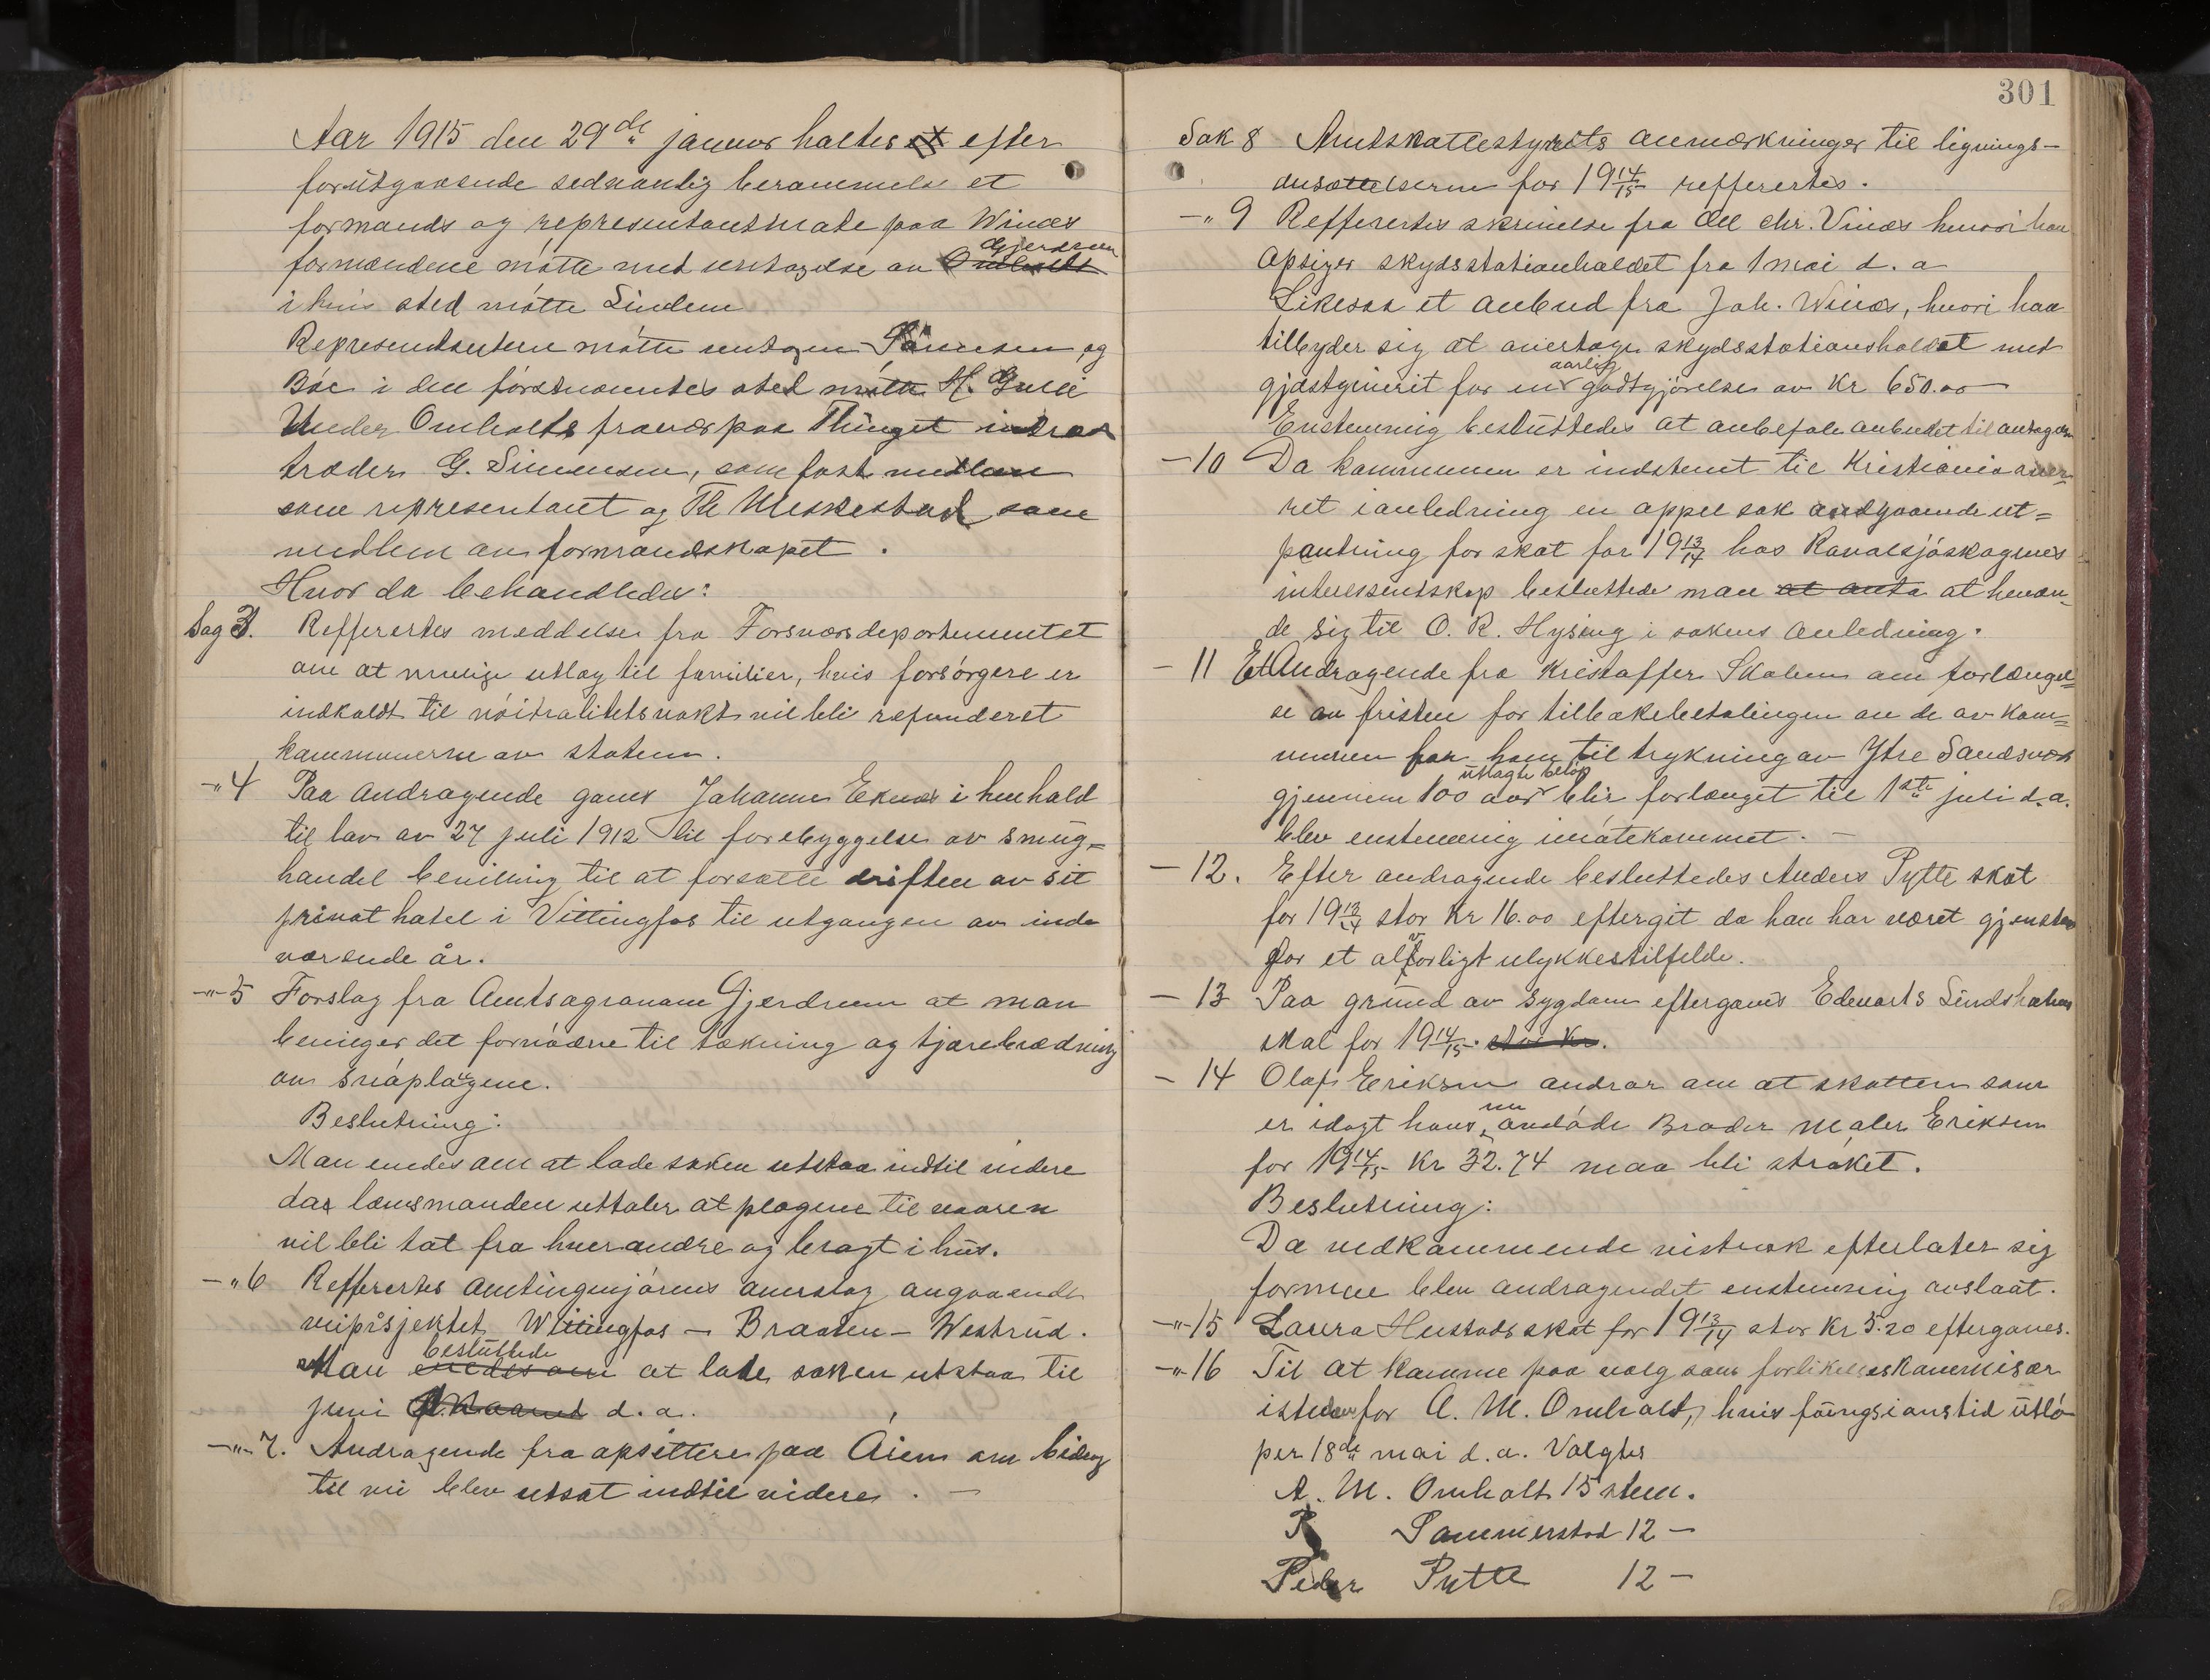 Aar 1915 den 29de januar holtes efter
forutgaaende sedvanlig berammelse et
formands og representantmøte paa Winæs
formændene møtte med undtagelse av Omholdt Gjerdrum
i hvis sted møtte Lindem
Representantene møtte undtagen Simensen og
Bøe i den førstnævntes sted møtte H. Gulli
Under Omholts fravær paa Thinget
træder G. Simensen, som fast medlem
som representant og Th Meskestad som
medlem av formandskapet.
Hvor da behandledes:
Sag 3. Refferertes meddelse fra Forsvarsdepartementet
om at mulige utlæg til familier, hvis forsørgere er
indkaldt til nøitralitetsvakt vil bli refunderet
kommunerne av staten.
-"-4 Paa andragende gaves Johannes Eknæs i henhold
til lov av 27 juli 1912 til forebyggelse av smug=
handel bevilling til at forsætte driften av sit
privat hotel i Vittingfos til utgangen av inde
værende år.
-"-5 Forslag fra Amtsagronom Gjerdrum at man
beviliger det fornødne til tækning og tjærebrædning
av snøplogene.
Beslutning:
Man enedes om at lade saken utstaa indtil videre
da lænsmanden uttaler at plogene til vaaren
vil bli tat fra hverandre og bragt i hus.
-"-6 Refferertes amtingeniørens overslag angaaende
veiprosjektet Wittingfos - Braaten - Westrud.
Man enedes om besluttede at late saken utstaa til
juni d.a.
-"-7. Andragende fra opsittere paa Åsen om bidrag
til vei blev utsat indtil videre. -
301
Sak 8 Amtskattestyrets anmærkninger til lignings-
ansættelserne for 1914/15 refferertes.
-"9 Refferertes skrivelse fra Ole Chr. Vinæs hvori han
opsiger skydsstationholdet fra 1 mai d. a
Likesaa et anbud fra Joh. Winæs, hvori han
tilbyder sig at overtage skydsstationsholdet med
gjæstgiverit for en aarlig godtgjørelse av Kr 650.00
Enstemmig besluttedes at anbefale anbudet til antagelse
-10 Da kommunen er indstemt til Kristiania over=
ret i anledning en appel sak angaaende ut=
pantning for skat for 1913/14 hos Ravalsjøskogenes
interessentskap besluttede man at anta at henven=
de sig til O. R. Hysing i sakens anledning.
- 11 Et Andragende fra Kristoffer Skolem om forlængel=
se av fristen for tilbakebetalingen av de av kom=
munen for ham til trykning av Ytre Sandsvær
gjennem 100 aar utlagte beløp blir forlænget til 1ste juli d.a.
blev enstemmig imøtekommet. -
- 12. Efter andragende besluttedes Anders Pytte skat
for 1913/14 stor Kr 16.00 eftergit da han har været gjenstand
for et alvorligt ulykkestilfelde.
- 13 Paa grund av sygdom eftergaves Edvarts Lindsholm
skat for 1914/15. stor Kr.
- 14 Olaf Eriksen andrar om at skatten som
er ilagt hans nu avdøde Broder Maler Eriksen
for 1914/15 Kr 32.74 maa bli strøket.
Beslutning:
Da vedkommende vistnok efterlater sig
formue blev andragendet enstemmig avslaat.
-"-15 Laura Hustads skat for 1913/14 stor Kr 5.20 eftergaves.
-"-16 Til at komme paa valg som forlikelseskommisær
istedenfor A. M. Omholt, hvis fungsionstid utlø
per 18de mai d.a. Valgtes
A. M. Omholt 15 stem.
P Sommerstad 12 -
Peder Pytte 12 -